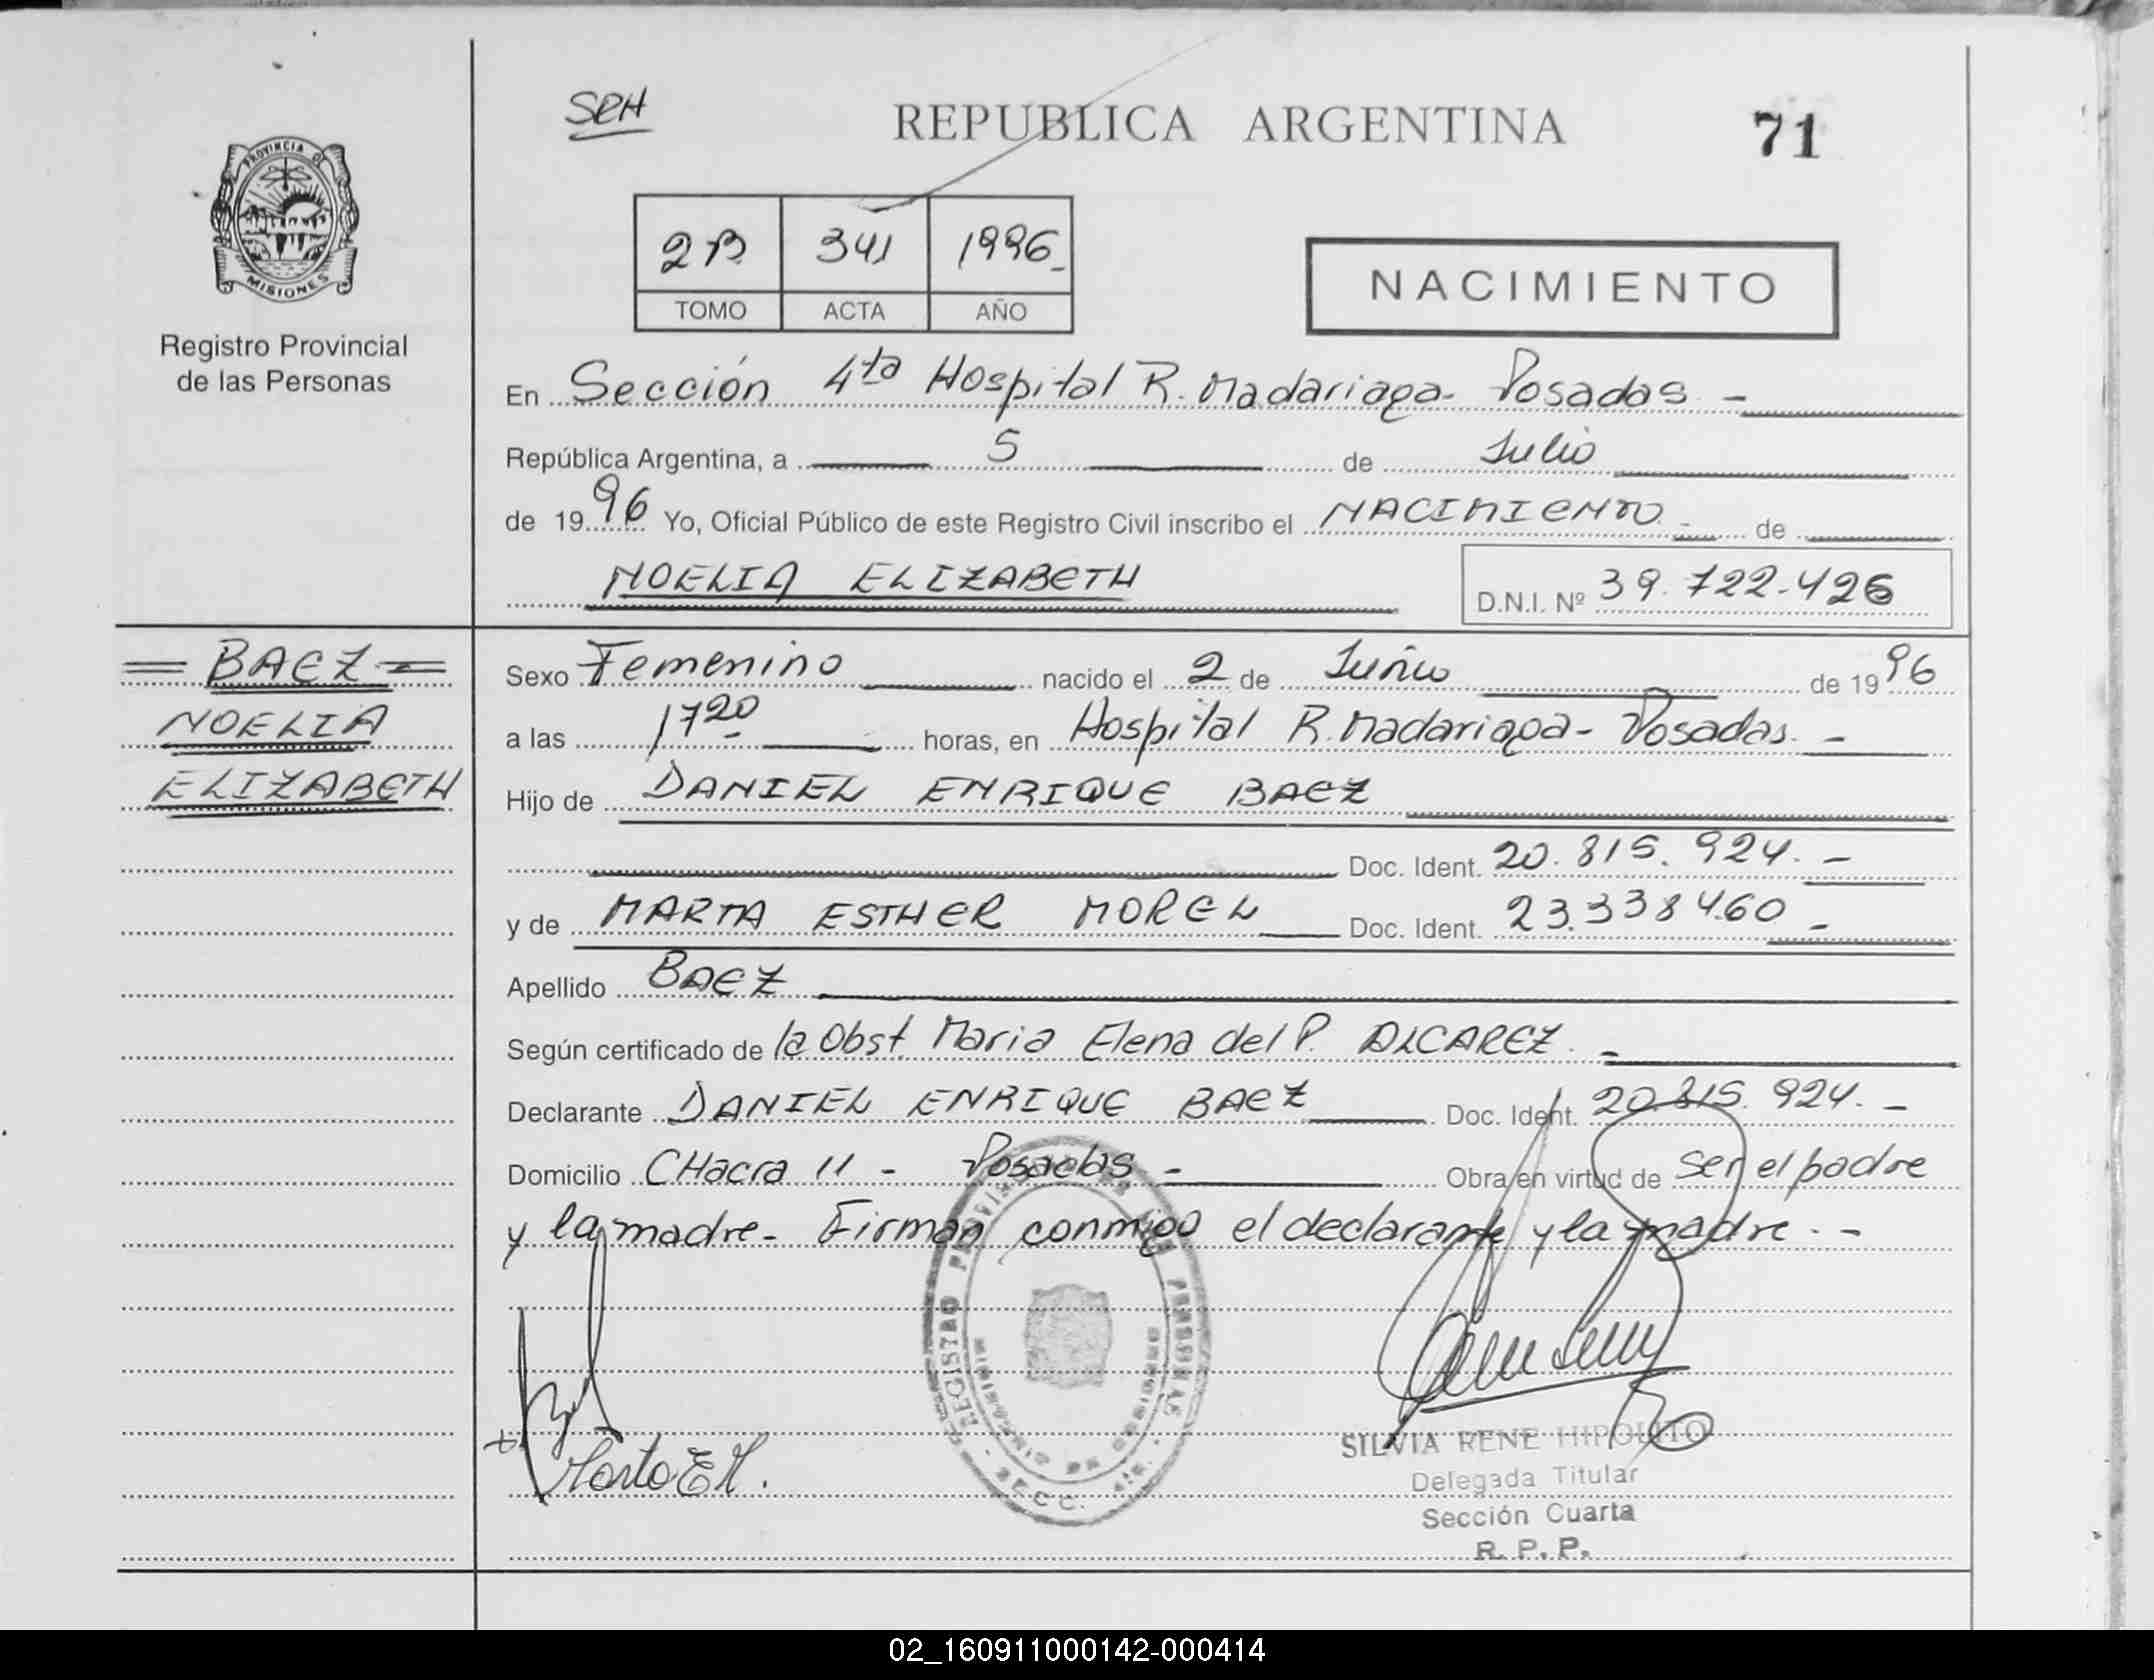 SRH
REPUBLICA ARGENTINA
71
PROVINCIA DE
MISIONES
Registro Provincial
de las Personas
2B 341 1996
TOMO ACTA AÑO
NACIMIENTO
En Sección 4ta Hospital R. Madariaga - Posadas -
República Argentina, a 5 de Julio
de 1996 Yo, Oficial Público de este Registro Civil inscribo el NACIMIENTO de
NOELIA ELIZABETH D.N.I. Nº 39.722.426
= BAEZ =
NOELIA
ELIZABETH
Sexo Femenino nacido el 2 de Junio de 1996
a las 17 20 horas, en Hospital R. Madariaga - Posadas. -
Hijo de DANIEL ENRIQUE BAEZ
Doc. Ident. 20.815.924. -
y de MARTA ESTHER MOREL Doc. Ident. 23.338460 -
Apellido BAEZ
Según certificado de la Obst. Maria Elena del P. ALCAREZ. -
Declarante DANIEL ENRIQUE BAEZ Doc. Ident. 20.815.924. -
Domicilio CHacra 11 - Posadas - Obra en virtud de ser el padre
y la madre - Firman conmigo el declarante y la madre. -
REGISTRO PROVINCIAL DE LAS PERSONAS
SECC.
SILVIA RENE HIPOLITO
Delegada Titular
Sección Cuarta
R. P. P.
02_160911000142-000414